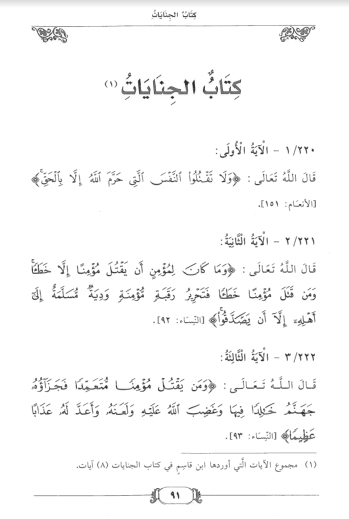 كِتَابُ الجِنَايَاتُ
كِتَابُ الجِنَايَاتُ (١)
١/٢٢٠ - الْآيَةُ الْأُولَى:
قَالَ اللَّهُ تَعَالَى : ﴿وَلَا تَقْتُلُوا النَّفْسَ الَّتِي حَرَّمَ اللَّهُ إِلَّا بِالْحَقِّ﴾
[الأنعَام: ١٥١].
٢/٢٢١ - الْآيَةُ الثَّانِيَةُ:
قَالَ اللَّهُ تَعَالَى : ﴿وَمَا كَانَ لِمُؤْمِنٍ أَن يَقْتُلَ مُؤْمِنًا إِلَّا خَطَـًٔا
وَمَن قَتَلَ مُؤْمِنًا خَطَـًٔا فَتَحْرِيرُ رَقَبَةٍ مُّؤْمِنَةٍ وَدِيَةٌ مُّسَلَّمَةٌ إِلَىٰ
أَهْلِهِۦ إِلَّا أَن يَصَّدَّقُوا﴾ [النِّسَاء: ٩٢].
٣/٢٢٢ - الْآيَةُ الثَّالِثَةُ:
قَالَ اللَّهُ تَعَالَى : ﴿وَمَن يَقْتُلْ مُؤْمِنًا مُّتَعَمِّدًا فَجَزَآؤُهُۥ
جَهَنَّمُ خَٰلِدًا فِيهَا وَغَضِبَ اللَّهُ عَلَيْهِ وَلَعَنَهُۥ وَأَعَدَّ لَهُۥ عَذَابًا
عَظِيمًا﴾ [النِّسَاء: ٩٣].
(١) مجموع الآيات الَّتي أوردها ابن قاسِم في كتاب الجنايات (٨) آيات.
٩١